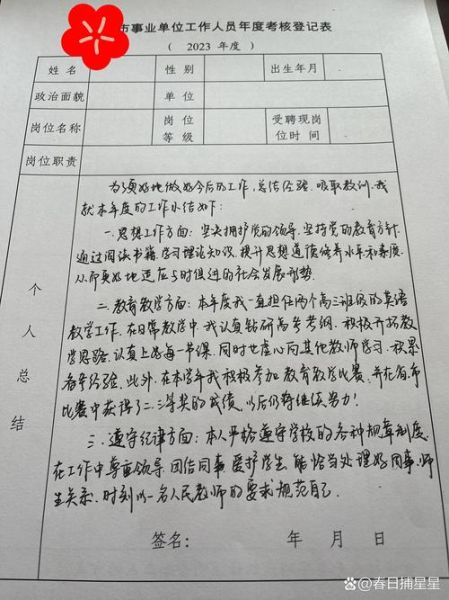 市事业单位工作人员年度考核登记表
( 2023 年度 )
姓名 性别 出生年月
政治面貌 单位
岗位名称 岗位等级 受聘现岗位时间
岗位职责
个人总结
为了更好地做好今后的工作,总结经验、吸取教训,我
就本年度的工作小结如下:
一.思想工作方面:坚决拥护党的领导,坚持党的教育方针,
通过阅读书籍,学习理论知识,提升思想道德修养水平和素质,
从而更好地适应与时俱进的社会发展形势.
二.教育教学方面:本年度我一直担任两个高三班级的英语
教学工作.在日常教学中,我认真钻研高考考纲,积极开拓教
学思路,认真上好每一节课,同时也虚心向其他教师学习,积累
备考经验.此外,在本学年我积极参加教育教学比赛,并在省、市
比赛中获得了二、三等奖的成绩,以后仍将继续努力!
三.遵守纪律方面:本人严格遵守学校的各种规章制度,
在工作中尊重领导,团结同事,爱护学生,能恰当处理好同事、师
生关系,时刻以一名人民教师的要求规范自己.
签名: 年 月 日
@春日捕星星